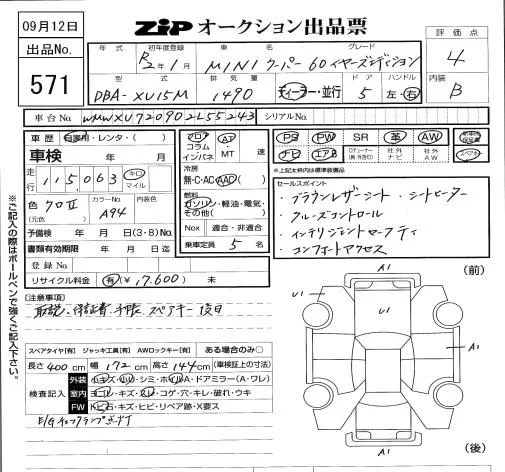 09月12日
ZiP オークション出品票
出品No.
571
年式
初年度登録 R2年1月
車名 MINI クーパー 60イヤーズエディション
グレード
評価点 4
型式 DBA-XU15M
排気量 1490
ディーラー・並行
ドア 5
ハンドル 左・右
内装 B
車台No. WMWXU720902L55243
シリアルNo.
車歴 自家用・レンタ・( )
車検 年 月
走行 115,063 キロ マイル
色 クロII
(元色)
カラーNo. A94
内装色
予備検 年 月 日(3・8)No.
書類有効期限 年 月 日迄
登録No.
リサイクル料金 有(¥17,600) 未
フロア コラム インパネ
AT・MT 速
冷房 無・C・AC・AAC( )
燃料 ガソリン・軽油・電気・その他( )
Nox 適合・非適合
乗車定員 5 名
PS PW SR 革 AW
ナビ エアB 社外ナビ 社外AW スペアキー
*上記太枠内は標準装備品
セールスポイント
・ブラウンレザーシート・シートヒーター
・クルーズコントロール
・インテリジェントセーフティ
・コンフォートアクセス
注意事項)
取説、保証書、手帳、スペアキー後日
スペアタイヤ[有] ジャッキ工具[有] AWロックキー[有] ある場合のみ○
長さ 400 cm 幅 172 cm 高さ 144 cm (車検証上の寸法)
検査記入
外装 小キズ・凹・シミ・ホイルA・ドアミラー(A・ワレ)
室内 ヨゴレ・キズ・スレ・コゲ・穴・キレ・破れ・ウキ
FW トビ石・キズ・ヒビ・リペア跡・X要ス
E/Gチェックランプ点灯
※ご記入の際はボールペンで強くご記入下さい。
A1
(前)
U1
U1
A1
A1
(後)